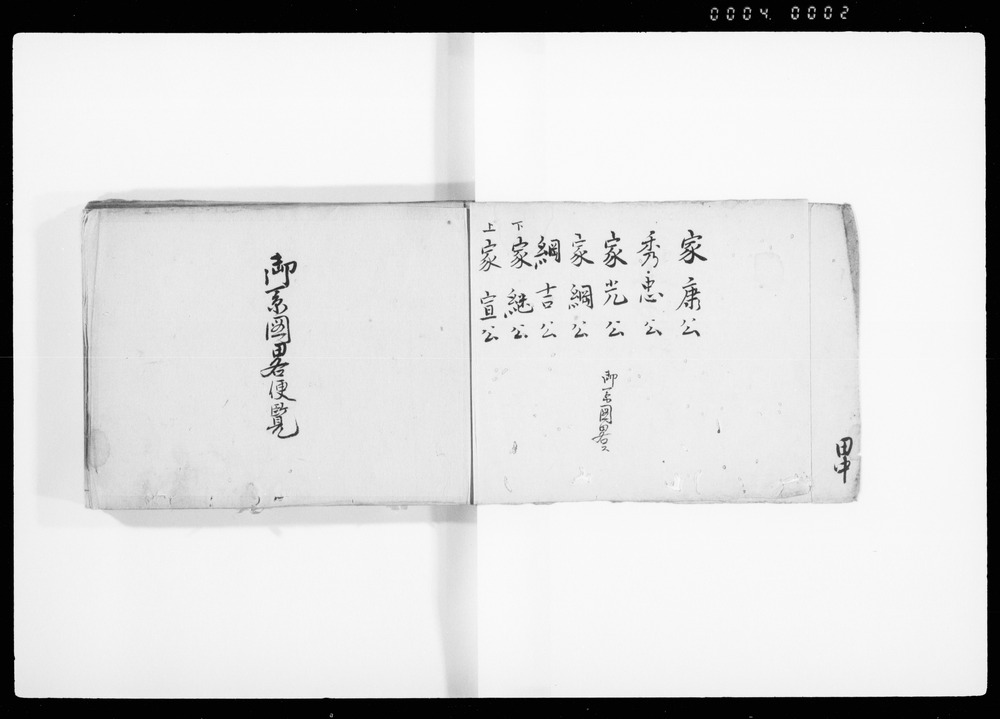 0004 0002
田中
家康公
秀忠公
家光公
家綱公
綱吉公
下 家継公
上 家宣公
御系図畧
御系図畧便覧